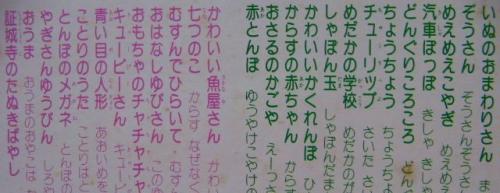 いぬのおまわりさん ま
ぞうさん ぞうさんぞう
めえめえこやぎ め
汽車ぽっぽ きしゃ きし
どんぐりころころ どん
ちょうちょう ちょうちょ
チューリップ さいた さ
めだかの学校 めだかの
しゃぼん玉 しゃぼんだま
かわいいかくれんぼ ひ
からすの赤ちゃん から
おさるのかごや えーっさ
赤とんぼ ゆうやけこやけの
かわいい魚屋さん かわい
七つのこ からす なぜなく
むすんでひらいて むす
おはなしゆびさん この
おもちゃのチャチャチャ
キューピーさん キュー
青い目の人形 あおいめを
ことりのうた ことりはと
とんぼのメガネ とんぼの
やぎさんゆうびん しろや
おうま おうまのおやこは
証城寺のたぬきばやし